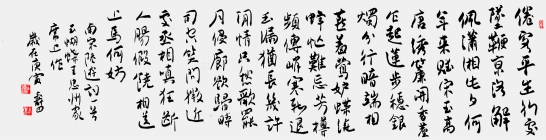 倦客平生行處
墜鞭京洛解
佩瀟湘此夕何
年來賦宋玉高
唐繡簾開香塵
乍起蓮步穩銀
燭分行暗端相
燕羞鶯妒蝶繞
蜂忙難忘芳樽
頻勸峭寒新退
玉漏猶長幾許
閒情只愁歌罷
月侵廊欲歸時
司空笑問微近
處丞相嗔狂斷
人腸假饒相送
上馬何妨
南宋陸游詞一首
玉蝴蝶王忠州家
席上作
歲在庚寅